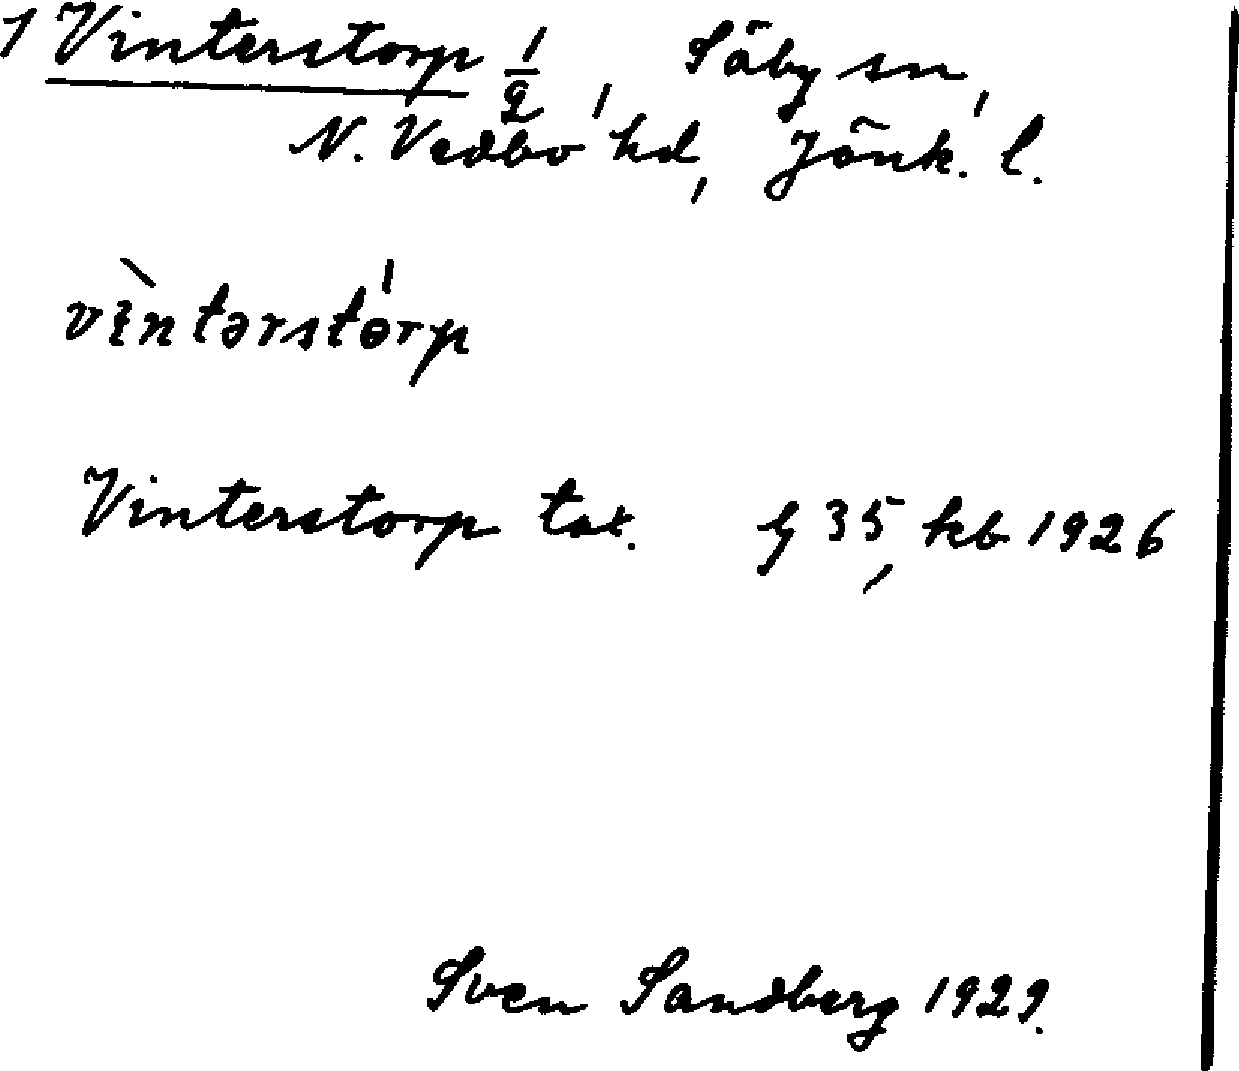 1 Vinterstorp 1/2, Säby sn,
N. Vedbo hd, Jönk. l.
vìntərstórp
Vinterstorp tax. § 35, kb 1926
Sven Sandberg 1929.